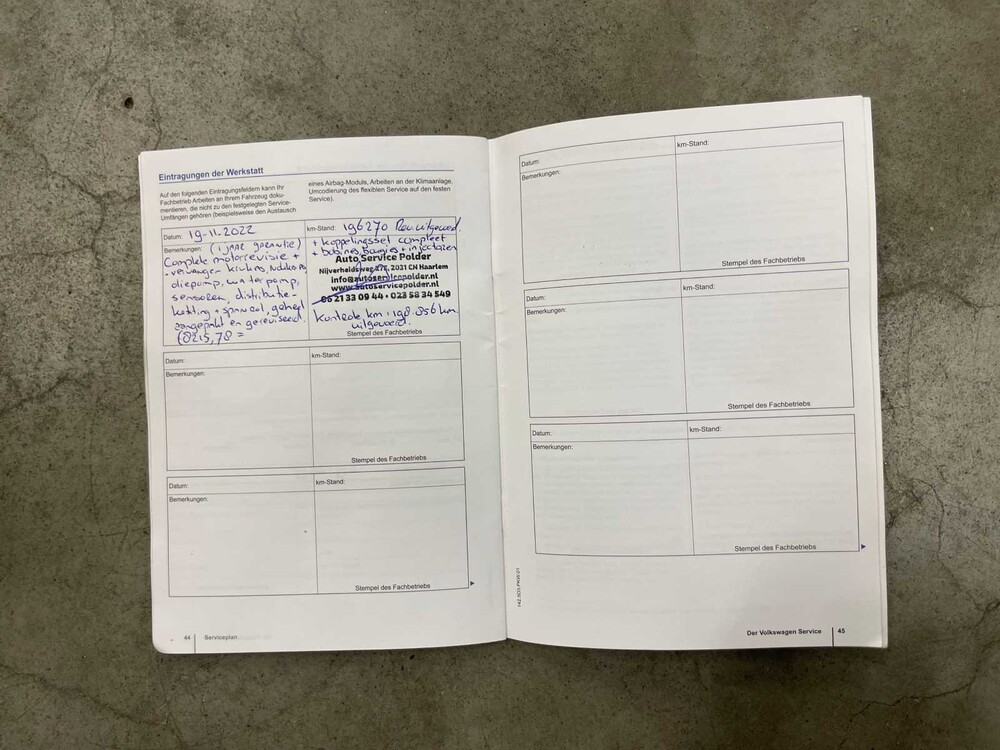 Eintragungen der Werkstatt
Auf den folgenden Eintragungsfeldern kann Ihr
Fachbetrieb Arbeiten an Ihrem Fahrzeug doku-
mentieren, die nicht zu den festgelegten Service-
Umfängen gehören (beispielsweise den Austausch
eines Airbag-Moduls, Arbeiten an der Klimaanlage,
Umcodierung des flexiblen Service auf den festen
Service).
Datum: 19-11.2022
km-Stand: 196270 Rev. uitgevoerd.
Bemerkungen: (1 jaar garantie)
Complete motorrevisie +
vervangen
oliepump, waterpomp,
sensoren, distributie-
ketting + spanset, geheel
aangepakt en gereviseerd.
(8215,78 =
+ koppelingsset compleet
+ bobines, Bougies + injectoren
Auto Service Polder
Nijverheidsweg 2031 CN Haarlem
info@autoservicepolder.nl
www.autoservicepolder.nl
06 21 33 09 44 • 023 58 34 549
Kontrole km: 198.056 km.
uitgevoerd.
Stempel des Fachbetriebs
Datum:
km-Stand:
Bemerkungen:
Stempel des Fachbetriebs
Datum:
km-Stand:
Bemerkungen:
Stempel des Fachbetriebs
44
Serviceplan
Datum:
km-Stand:
Bemerkungen:
Stempel des Fachbetriebs
Datum:
km-Stand:
Bemerkungen:
Stempel des Fachbetriebs
Datum:
km-Stand:
Bemerkungen:
Stempel des Fachbetriebs
Der Volkswagen Service
45